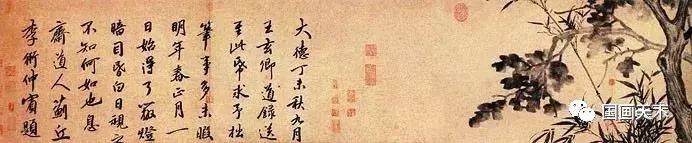 大德丁未秋九月
王玄卿道錄送
至此帋求予拙
筆事多未暇
明年春正月一
日始得了燈
暗目昏白日視之
不知何如也息
齋道人薊丘
李衎仲賓題
国画天禾